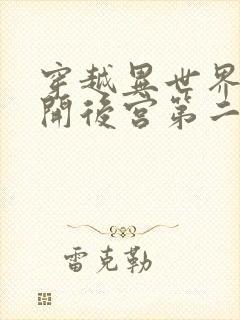 穿越異世界
開後宮第二
雷克勒